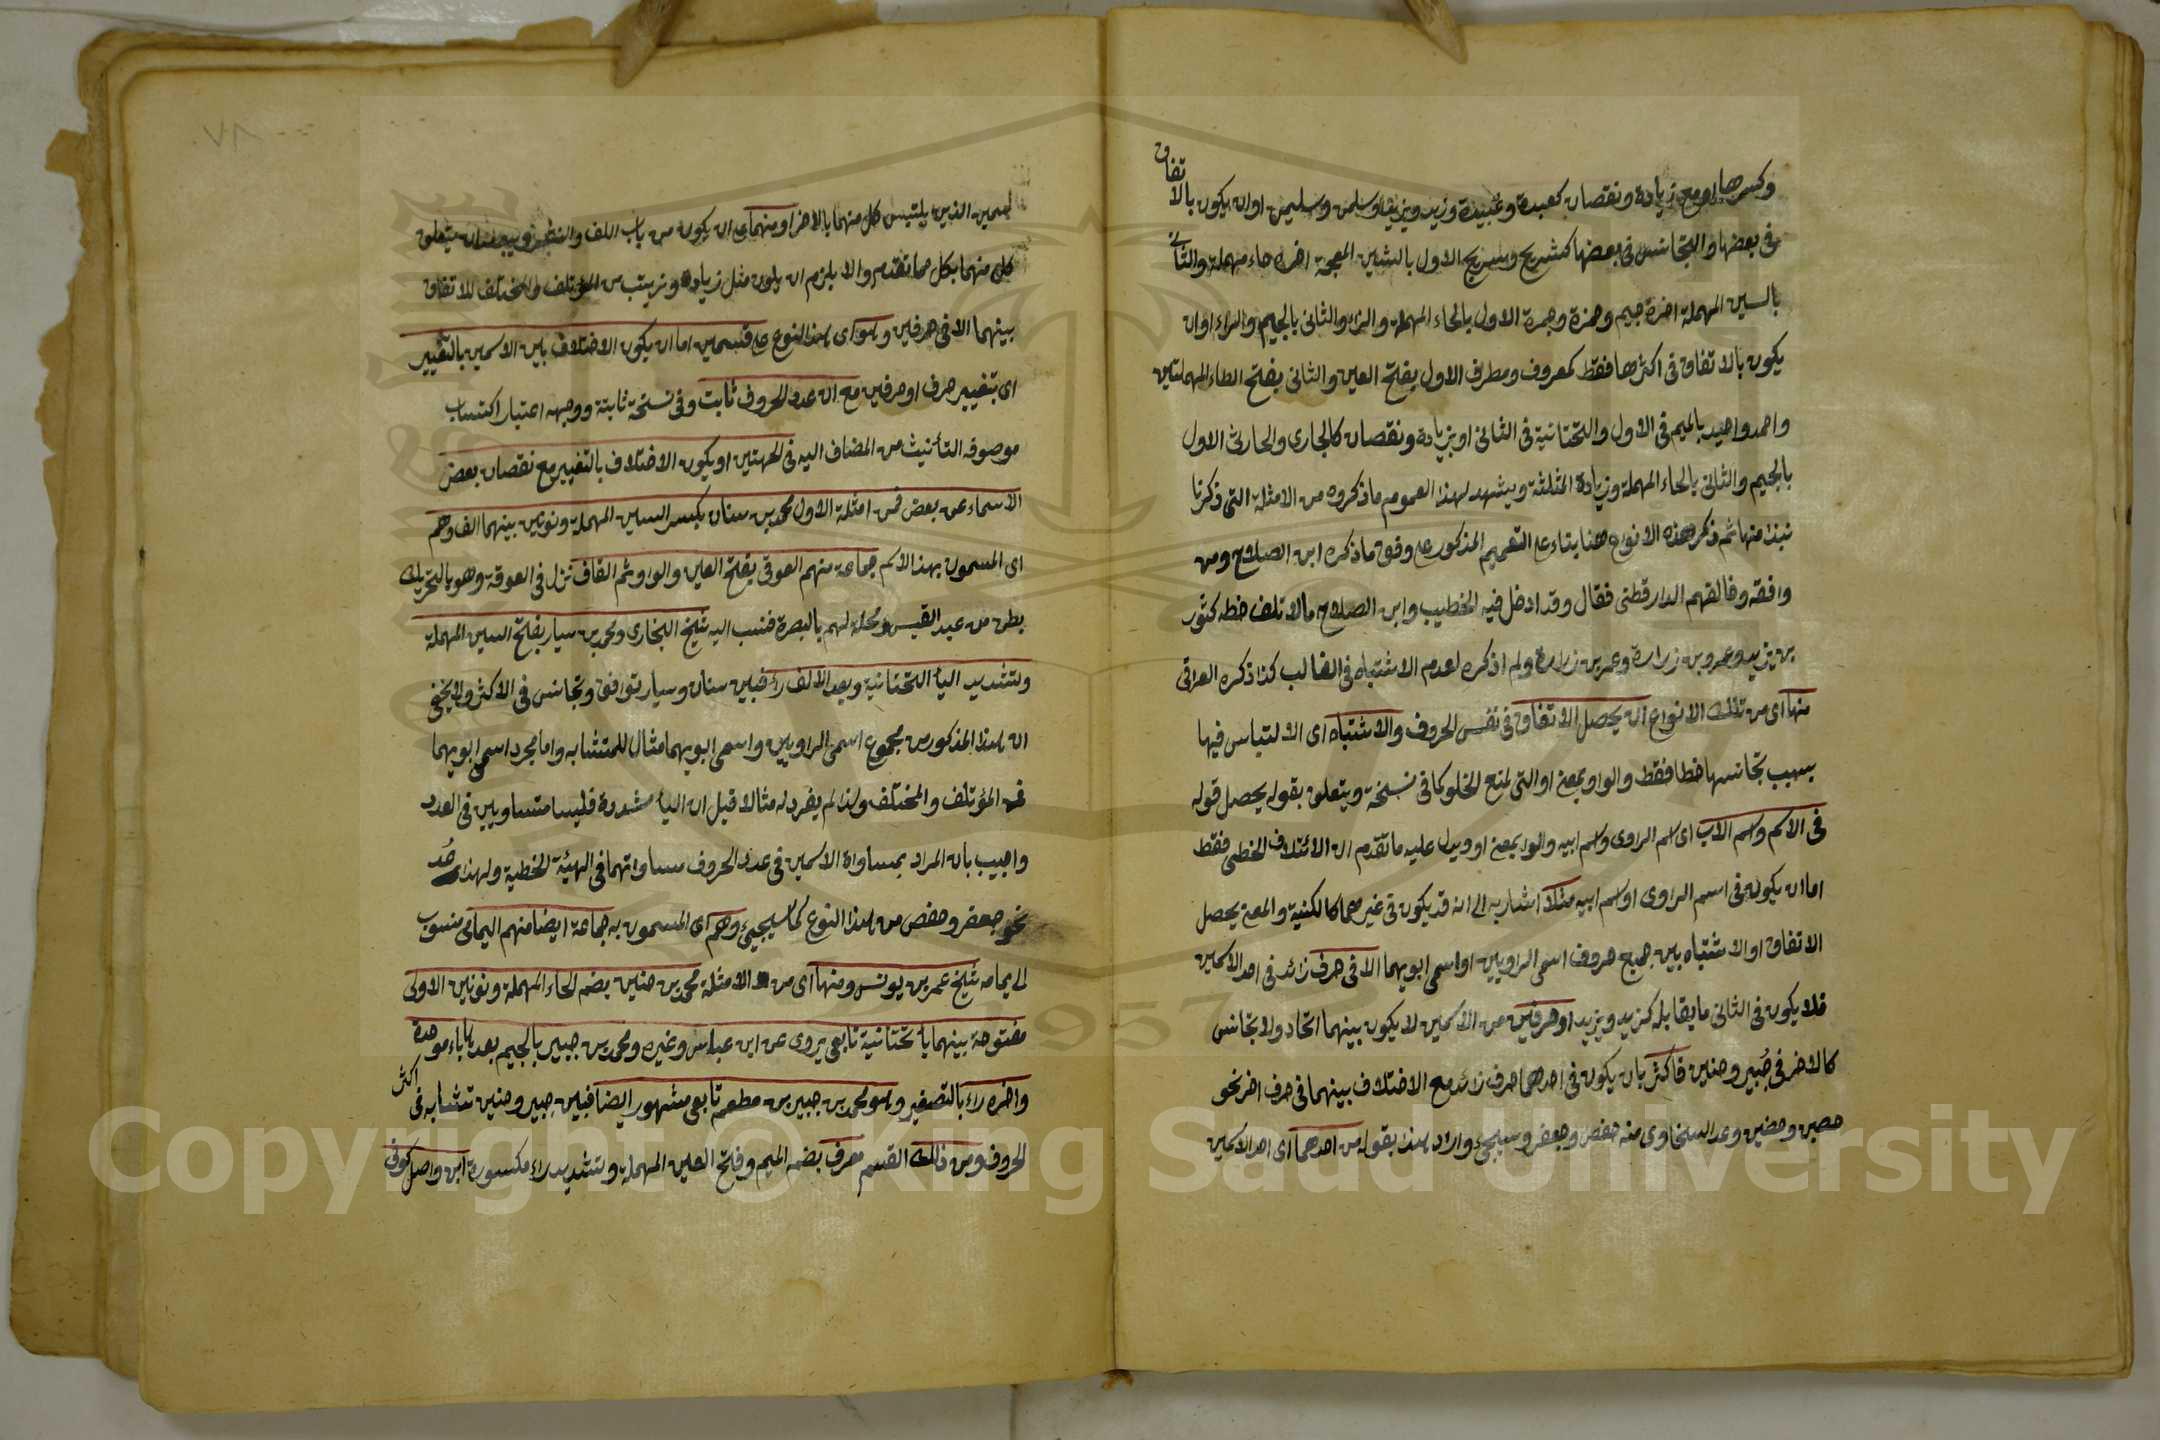 وكسرها او مع زيادة ونقصان كعبدة وعبيدة وزيد ويزيد وسلمن وسليمن او ان يكون بالاتفاق
في بعضها والتجانس في بعضها كشريح وسريج الاول بالشين المعجمة اخره حاء مهملة والثاني
بالسين المهملة اخره جيم وحمزة وجمرة الاول بالحاء المهملة والزاء والثاني بالجيم والراء او ان
يكون بالاتفاق في اكثرها فقط كمعروف ومطرف الاول بفتح العين والثاني بفتح الطاء المهملتين
واحمد واحيد بالميم في الاول والتحتانية في الثاني او بزيادة ونقصان كالجاري والحارث الاول
بالجيم والثاني بالحاء المهملة وزيادة المثلثة ويشهد لهذا العموم ما ذكروه من الامثلة التي ذكرنا
نبذا منها ثم ذكر هذه الانواع هنا بناء على التعميم المذكور على وفق ما ذكره ابن الصلاح ومن
وافقه وخالفهم الدارقطني فقال وقد ادخل فيه الخطيب وابن الصلاح ما لا تلف خطه كثور
بن يزيد وعمرو بن زرارة وعمر بن زرارة ولم اذكره لعدم الاشتباه في الغالب كذا ذكره العراقي
منها اي من تلك الانواع ان يحصل الاتفاق في نفس الحروف والاشتباه اي الالتباس فيها
بسبب تجانسها خطا فقط والواو بمعنى او التي لمنع الخلو كما في نسخة ويتعلق بقوله يحصل قوله
في الاسم واسم الاب اي اسم الراوي واسم ابيه والواو بمعنى او ويدل عليه ما تقدم ان الائتلاف الخطي فقط
اما ان يكون في اسم الراوي او اسم ابيه مثلا اشار به الى انه قد يكون في غيرهما كالكنية والمعنى يحصل
الاتفاق او الاشتباه بين جميع حروف اسمي الراويين او اسمي ابويهما الا في حرف زائد في احد الاسمين
فلا يكون في الثاني ما يقابله كزيد ويزيد او حرفين من الاسمين لا يكون بينهما اتحاد ولا تجانس
كالاخر في جُبير وحنين فاكثر بان يكون في احدهما حرف زائد مع الاختلاف بينهما في حرف اخر نحو
حصين وحضين وعد السخاوي منه حفص وجعفر وسيجئ واراد بهذا بقوله من احدهما اي احد الاسمين
الذين يلتبس كل منهما بالاخر او منهما اي ان يكون من باب اللف والنشر ويمكن ان يتعلق
كل منهما بكل مما تقدم والا يلزم ان يكون مثل زياده وزينب من المؤتلف والمختلف للاتفاق
بينهما الا في حرفين وهو اي هذا النوع على قسمين اما ان يكون الاختلاف بين الاسمين بالتغيير
اي بتغيير حرف او حرفين مع ان عدد الحروف ثابت وفي نسخة ثابتة ووجهه اعتبار اكتساب
موصوفه التأنيث من المضاف اليه في الجهتين او يكون الاختلاف بالتغيير مع نقصان بعض
الاسماء عن بعض فمن امثلة الاول محمد بن سنان بكسر السين المهملة ونونين بينهما الف وهم
اي المسمون بهذا الاسم جماعة منهم العوقي بفتح العين والواو ثم القاف نزل في العوقة وهو بالتحريك
بطن من عبد القيس ومحلة لهم بالبصرة فنسب اليه شيخ البخاري ومحمد بن سيار بفتح السين المهملة
وتشديد الياء التحتانية وبعد الالف راء فبين سنان وسيار توافق وتجانس في الاكثر ولا يخفى
ان هذا المذكور من مجموع اسمي الراويين واسمي ابويهما مثال للمتشابه واما مجرد اسمي ابويهما
فمن المؤتلف والمختلف ولذا لم يفرد له مثالا قيل ان الياء مشددة فليسا متساويين في العدد
واجيب بان المراد بمساواة الاسمين في عدد الحروف مساواتهما في الهيئة الخطية ولهذا عُد
نحو جعفر وحفص من هذا النوع كما سيجيئ وهم اي المسمون به جماعة ايضا منهم اليماني منسوب
الى يمامه شيخ عمر بن يونس ومنها اي من الامثلة محمد بن حنين بضم الحاء المهملة ونونين الاولى
مفتوحة بينهما ياء تحتانية تابعي يروي عن ابن عباس وغيره ومحمد بن جبير بالجيم بعدها باء موحدة
واخره راء بالتصغير وهو محمد بن جبير بن مطعم تابعي مشهور ايضا فبين جبير وحنين تشابه في اكثر
الحروف ومن ذلك القسم معرف بضم الميم وفتح العين المهملة وتشديد راء مكسورة ابن واصل كوفي
Copyright © King Saud University
1957